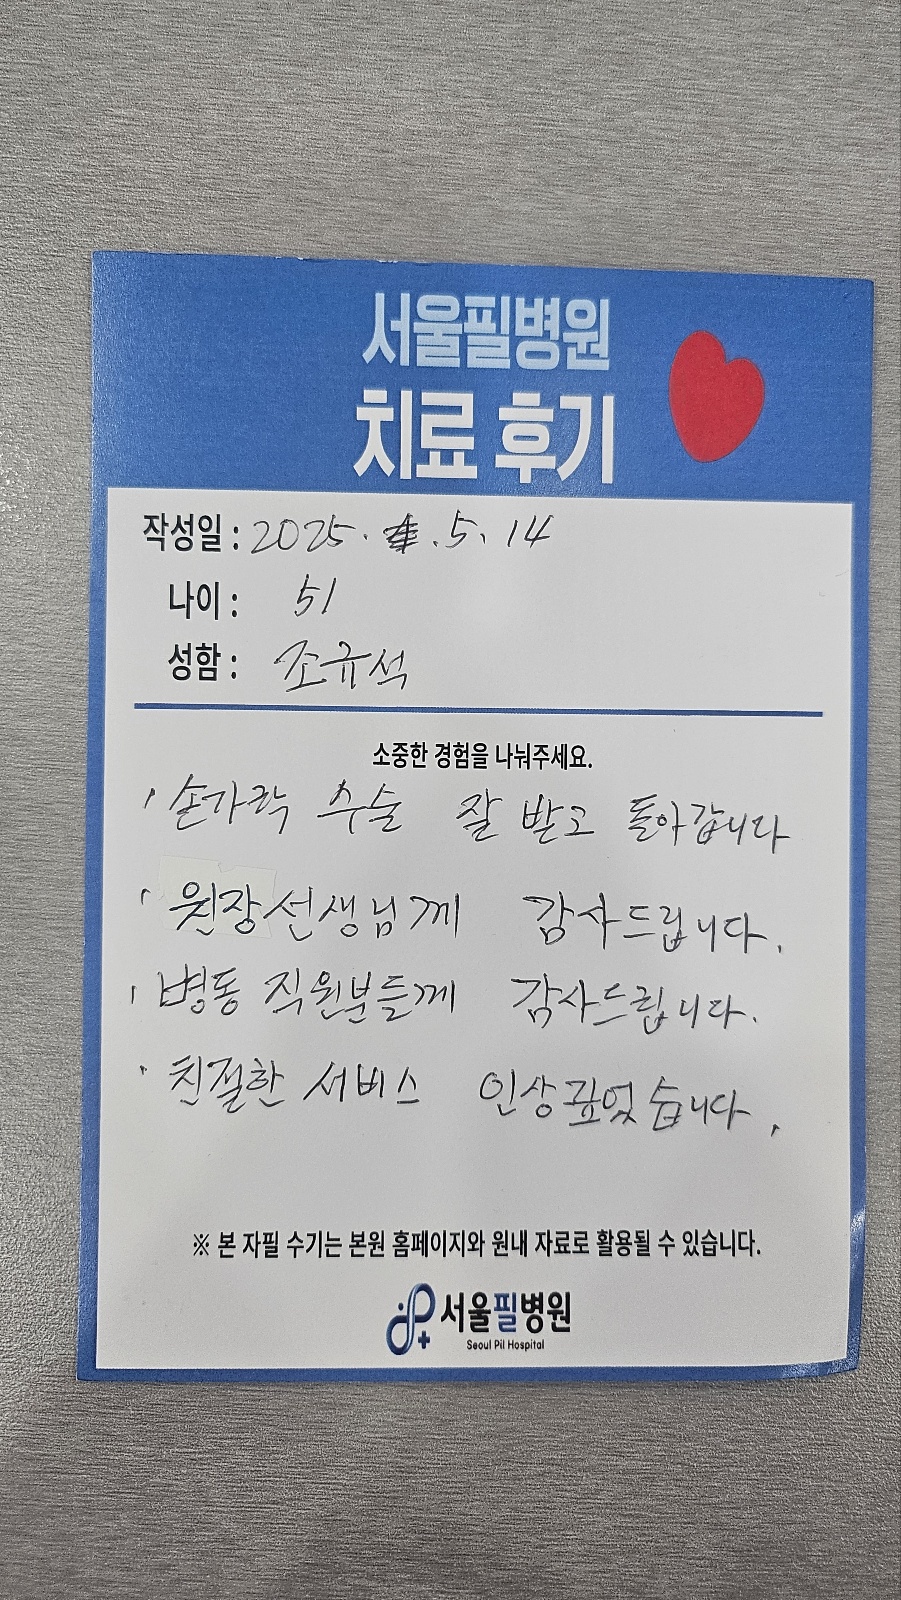 서울필병원
치료 후기
작성일 : 2025. . 5. 14
나이 : 51
성함 : 조규석
소중한 경험을 나눠주세요.
' 손가락 수술 잘 받고 돌아갑니다
' 원장선생님께 감사드립니다.
' 병동 직원분들께 감사드립니다.
' 친절한 서비스 인상깊었습니다.
※ 본 자필 수기는 본원 홈페이지와 원내 자료로 활용될 수 있습니다.
서울필병원
Seoul Pil Hospital